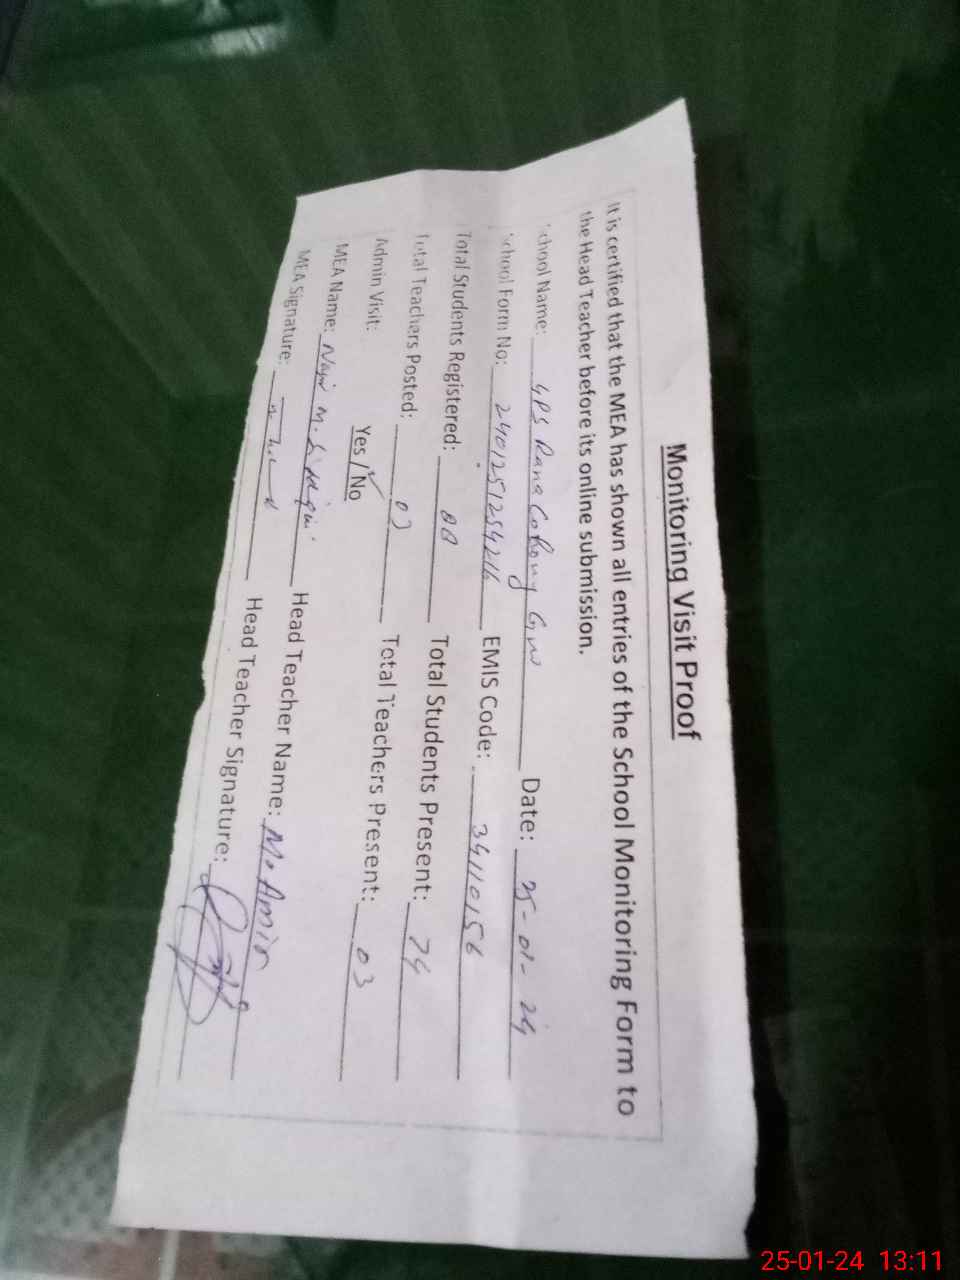 Monitoring Visit Proof
It is certified that the MEA has shown all entries of the School Monitoring Form to
the Head Teacher before its online submission.
School Name: GPS Rana Colony Date: 25-01-24
School Form No: 2401251254216 EMIS Code: 34110156
Total Students Registered: 88 Total Students Present: 74
Total Teachers Posted: 03 Total Teachers Present: 03
Admin Visit: Yes / No
MEA Name: M. Head Teacher Name: M. Amir
MEA Signature: Head Teacher Signature:
25-01-24 13:11